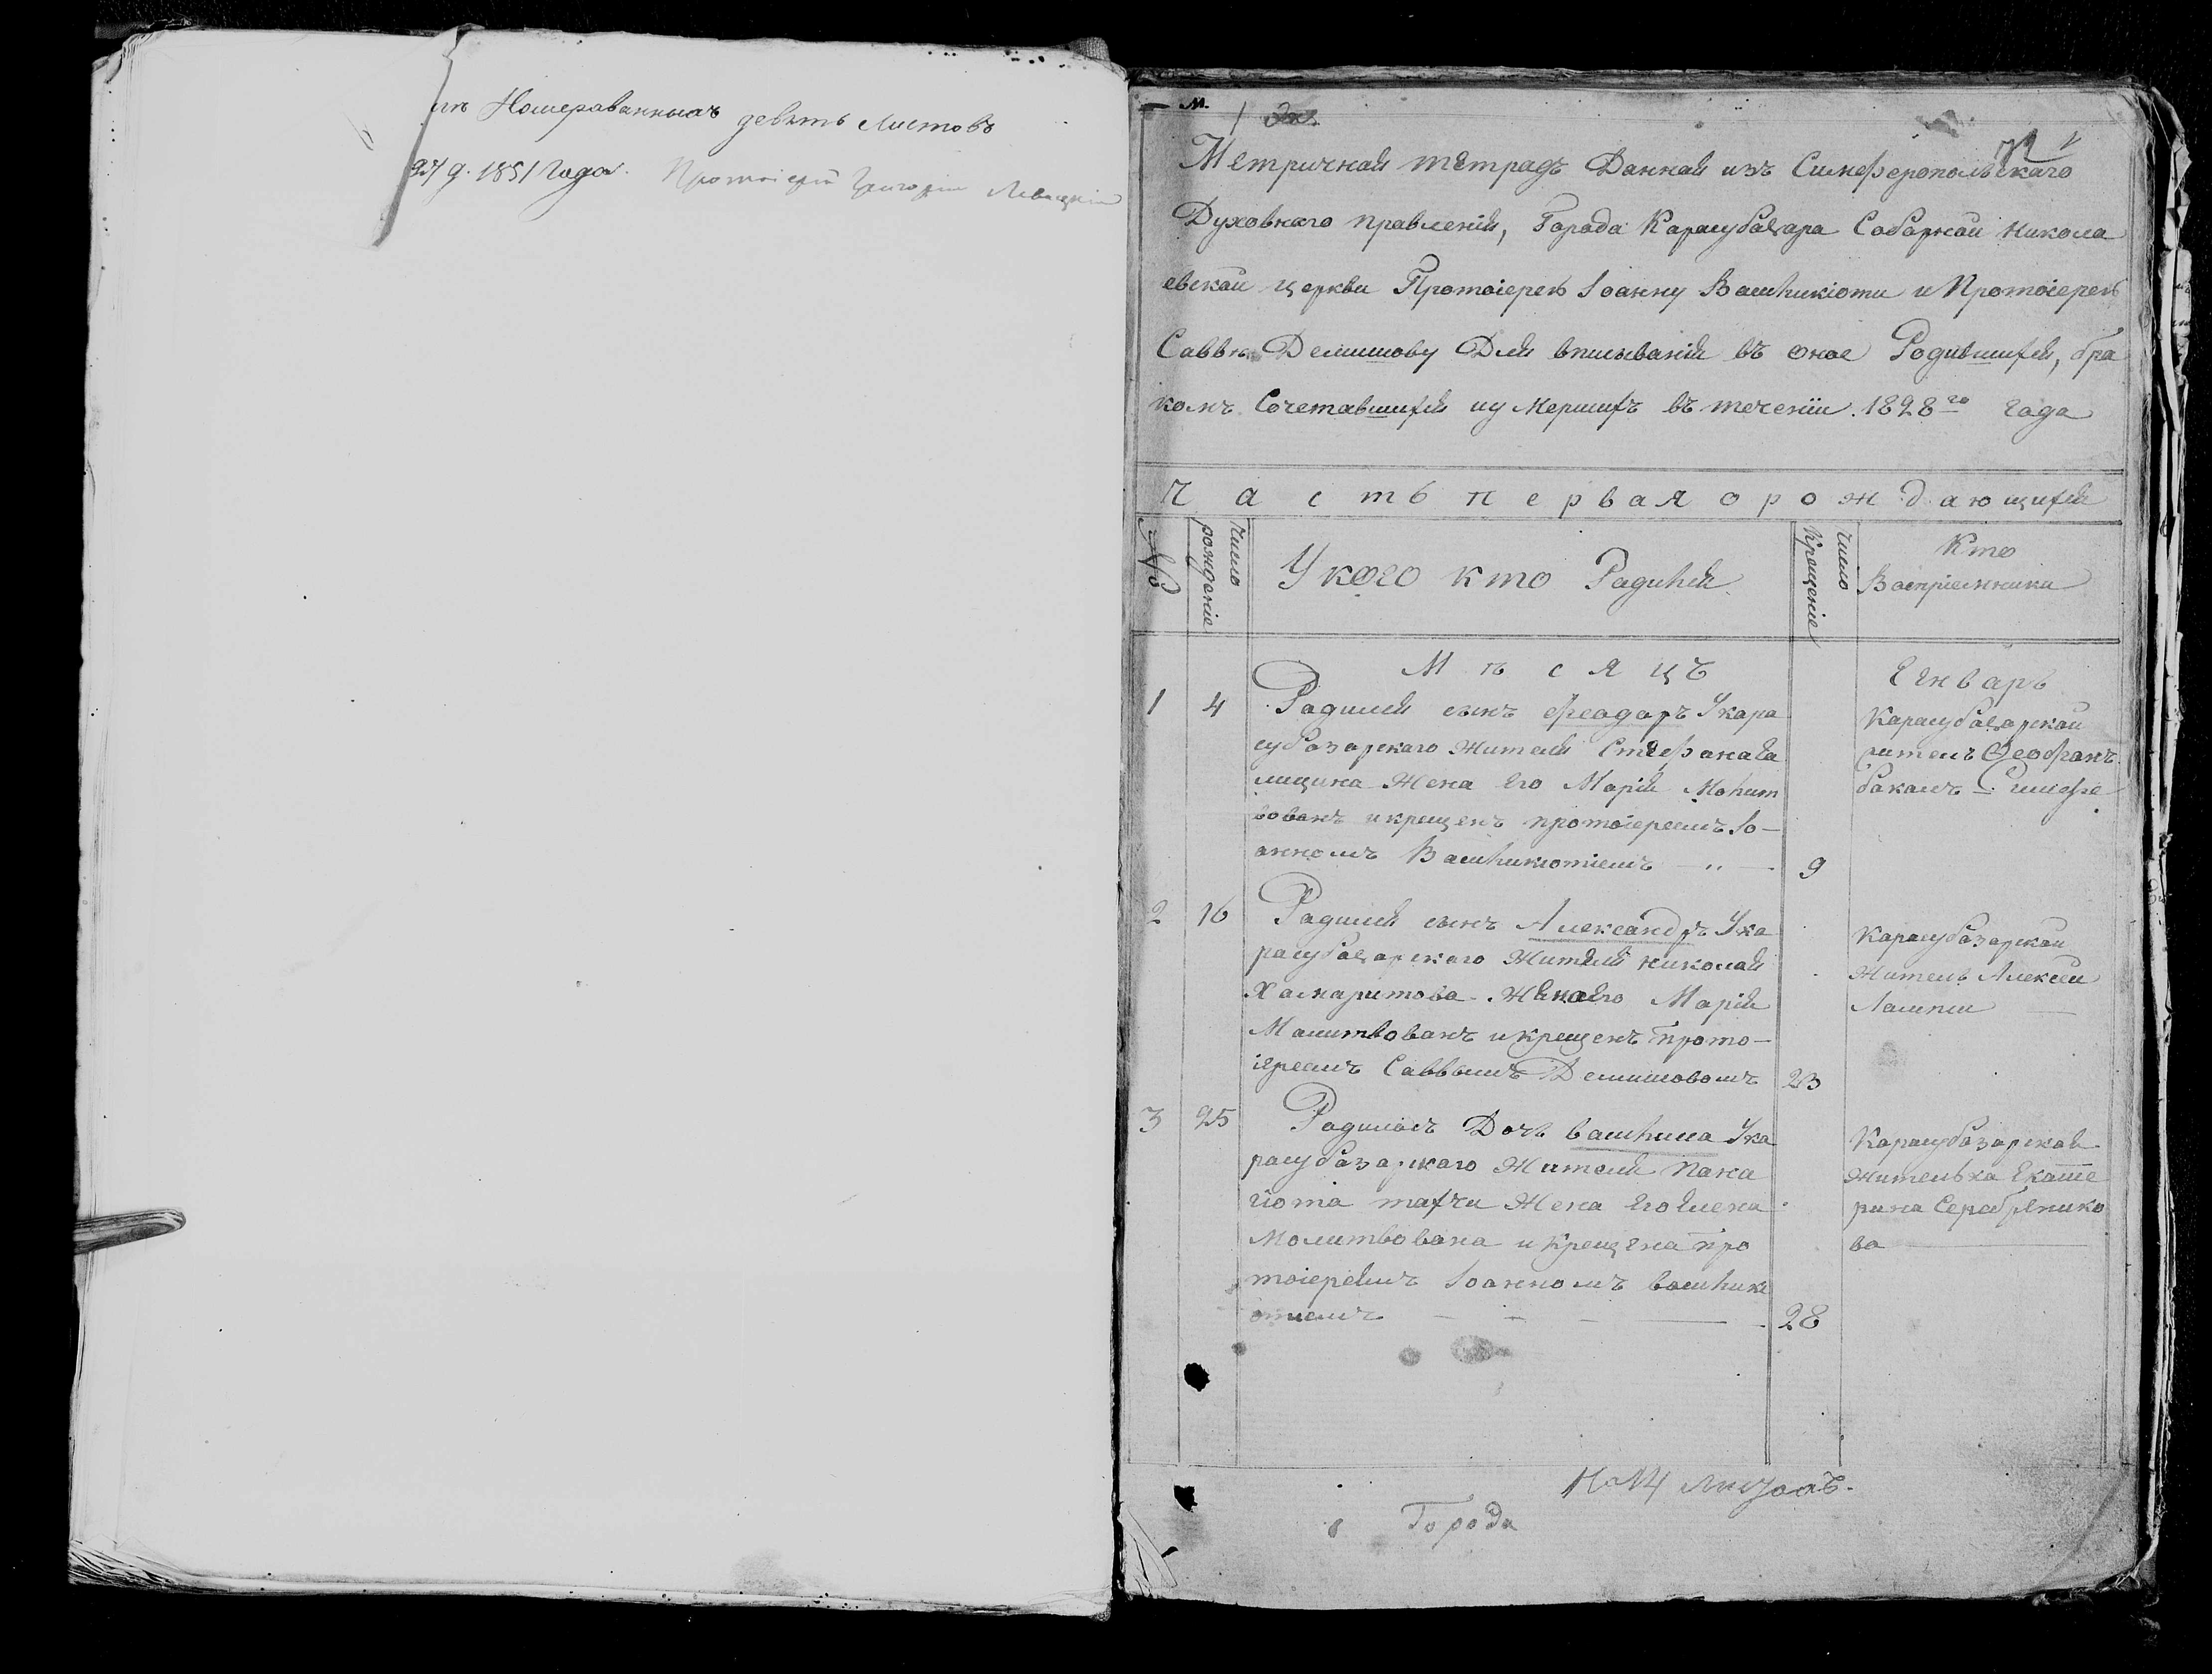 Номерованныхъ девять листовъ
1851 года. Протоіерей Григорій
Метричнай тетрадъ Даннай изъ Симферопольскаго
Духовнаго правленій, Города Карасубазара Собарной Никола
евской церкви Протоіерею Іоанну Вамһикіоти и Протоіерею
Саввѣ Демишову Длй вписываній въ оное Родившихсй, бра
комъ Сочетавшихсй иумершихъ въ теченіи 1828го года
Ч а с т ь п е р в а я о р о ж д а ю щихсй
№
число рожденіе
У кого кто Радиһсй
число Крещеніе
Кто
Васпріемники
М ѣ с я ц ъ
Генварь
1 4
Радилсй сынъ Феадаръ Укара
субазарскаго Жителй Стефана
Жена Его Марій Маһит
вованъ икрещенъ протоіереемъ Іо-
анномъ Вамһикіотіемъ
9
Карасубазарской
житель Феофанъ
2 16
Радилсй сынъ Александръ Ука
расубазарскаго Жителй николай
Хамаритова Жена Его Марій
Малитвованъ икрещенъ прото-
іереемъ Саввымъ Демишовомъ
23
Карасубазарской
Житель Алексей
Лампси
3 25
Радилась Дочь вамһиса Ука
расубазарскаго Жителй пана
гіота тахчи Жена Его Елена
Молитвована икрещена про
тоіереемъ Іоанномъ вамһикі
отіемъ
28
Карасубазарскай
Жительха Екате
рина Серебрянико
ва
На 14 листахъ.
Города